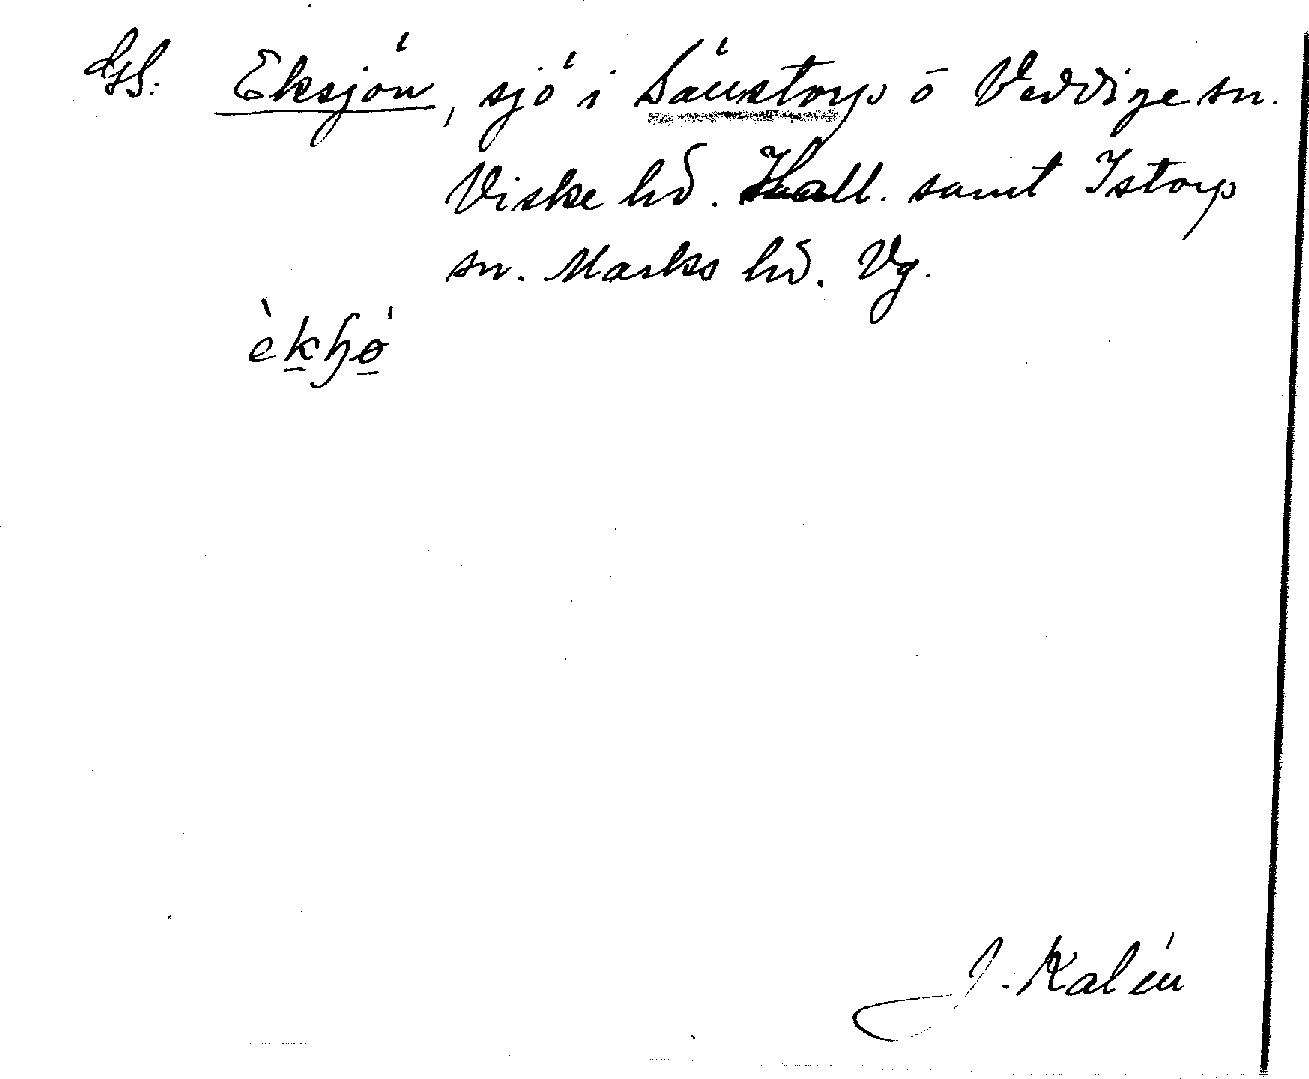 Eksjön, sjö i Säustorp o Veddige sn.
Viske hd. Hall. samt Istorp
sn. Marks hd. Vg.
J. Kalén